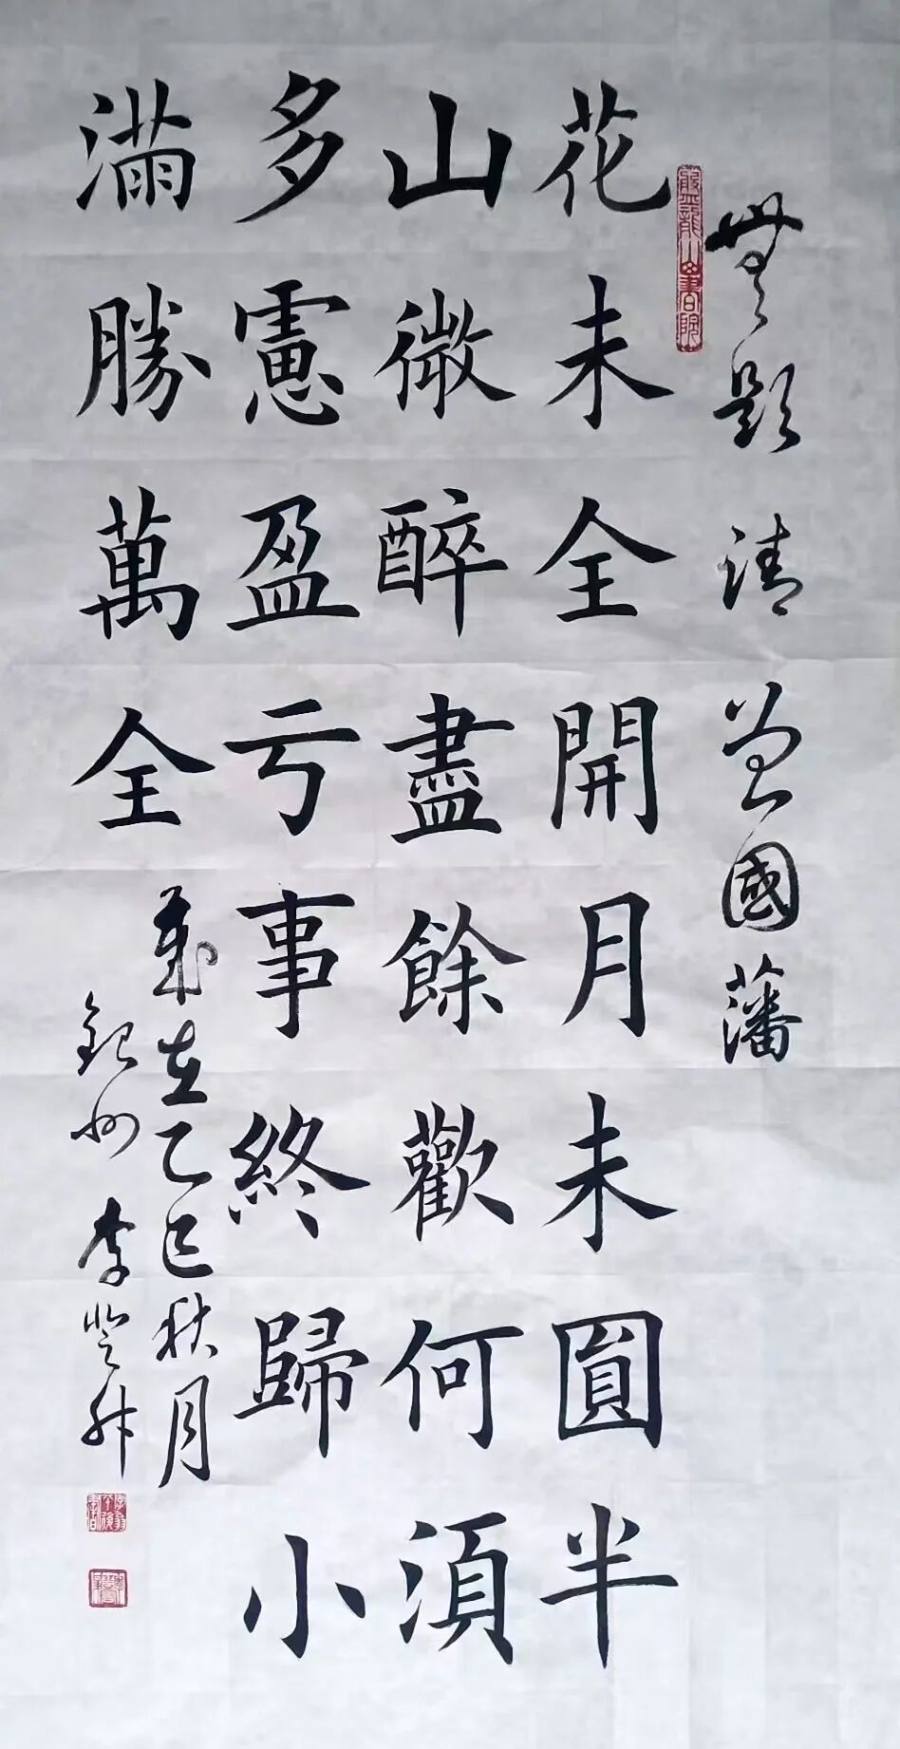 無題 清 曾國藩
花未全開月未圓半
山微醉盡餘歡何須
多慮盈亏事終歸小
滿勝萬全
歲在乙巳秋月
李登科